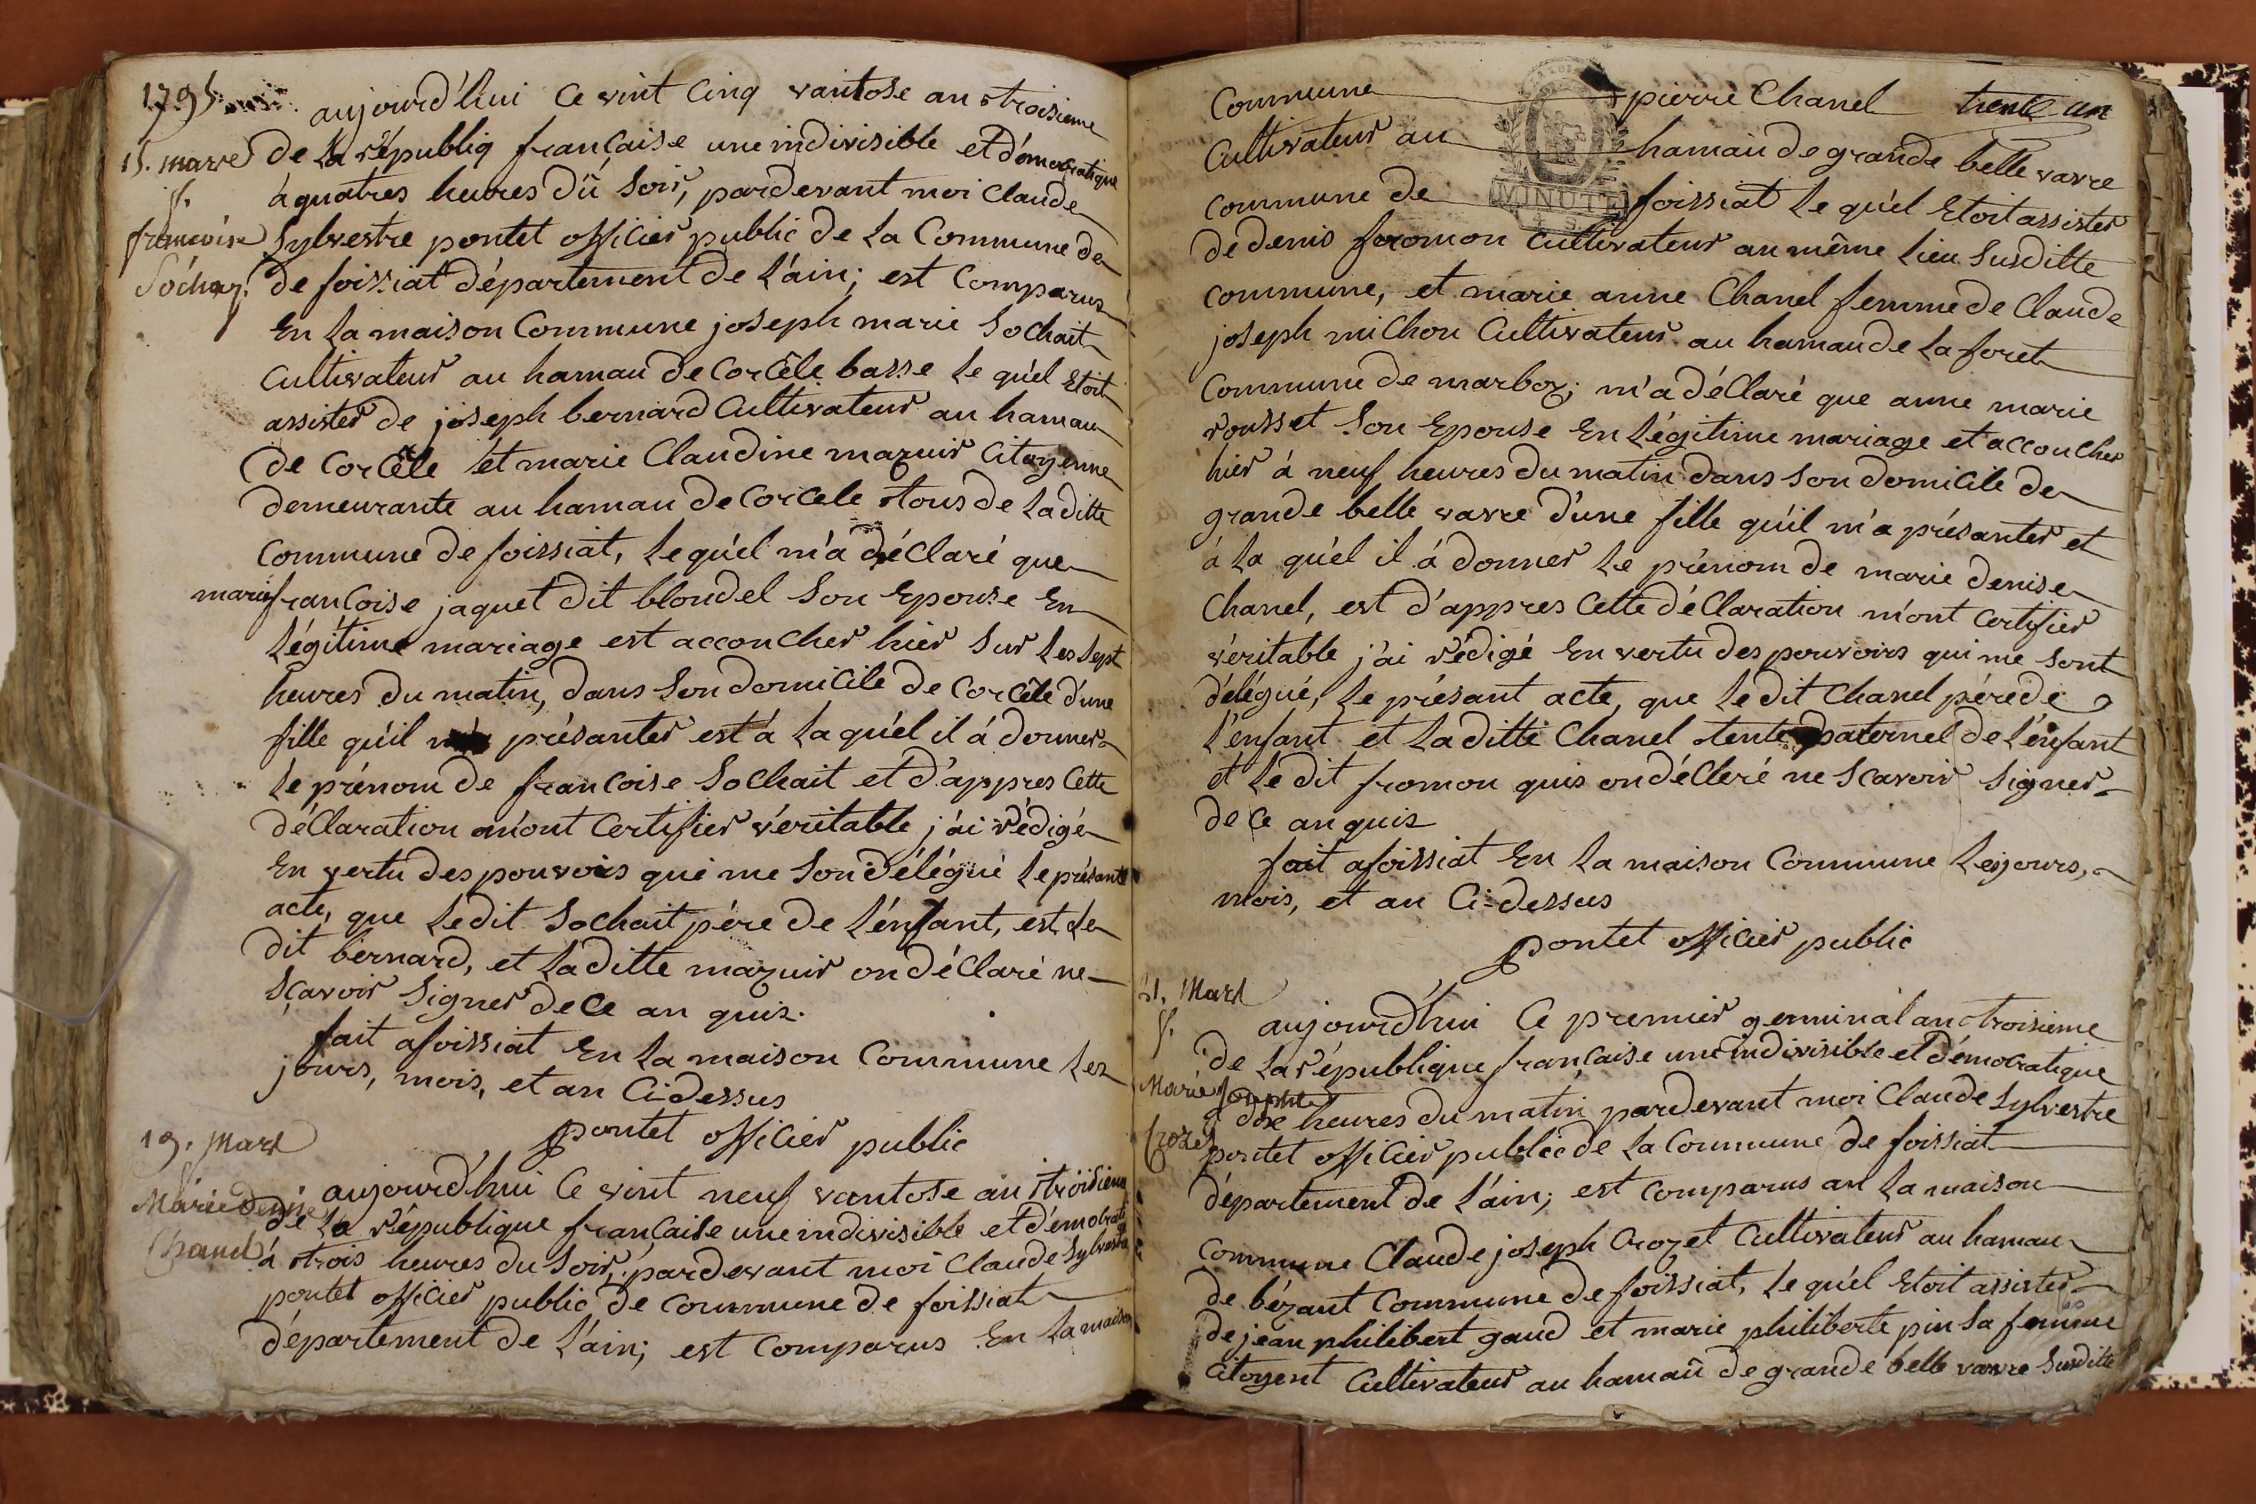 1795
aujourd'hui ce vint cinq vantose an troisieme
15. mars de la républiq française une indivisible et démocratique
f. à quatres heures dû soir, pardevant moi Claude
francoise Sylvestre pontet officier public de la Commune de
Sochay. de foissiat département de l'ain; est comparus
En la maison Commune joseph marie Sochait
Cultivateur au hamau de Corcêle basse le qu'el Etoit
assister de joseph bernard Cultivateur au hamau
de Corcêle et marie Claudine mazuir Citoyenne
demeurante au hamau de Corcele tous de la ditte
Commune de foissiat, le qu'el m'a déClaré que
marie françoise jaquet dit blondel Son Epouse En
légitime mariage est accoucher hier Sur les Sept
heures du matin, dans Son domicile de Corcêle d'une
fille qu'il m'a présanter est à la qu'el il à donner
le prénom de francoise Sochait et d'appres Cette
déClaration m'ont Certifier véritable j'ai rédigé
En vertu des pouvoirs qui me Son délégué le présant
acte, que le dit Sochait père de l'énfant, est le
dit bernard, et la ditte mazuir on déClaré ne
Sçavoir Signer de Ce an quis.
fait a foissiat En la maison Commune les
jours, mois, et an Ci-dessus
pontet officier public
19. Mars
aujourd'hui Ce vint neuf vantose an troisieme
Marie Denise de la république française une indivisible et démocratiq
Chanel à trois heures du Soir, pardevant moi Claude Sylvestre
pontet officier public de Commune de foissiat
département de l'ain; est Comparus En la maison
Commune pierre Chanel trente un
Cultivateur au hamau de grande belle vavre
MINUTE
commune de foissiat le qu'el Etoit assister
de denis fromon Cultivateur au même lieu Susditte
Commune, et marie anne Chanel femme de Claude
joseph michon Cultivateur au hamau de la foret
Commune de marboz; m'a déClaré que anne marie
rousset Son Epouse En légitime mariage et accoucher
hier à neuf heures du matin dans Son domicile de
grande belle vavre d'une fille qu'il m'a présanter et
à la qu'el il à donner le prénom de marie denise
Chanel, est d'appres Cette déClaration m'ont Certifier
véritable j'ai rédigé En vertu des pouvoirs qui me Sont
délégué, le présant acte, que le dit Chanel pére de
l'énfant et la ditte Chanel tente paternel de l'énfant
et le dit fromon quis on déCleré ne Scavoir Signer
de Ce an quis
fait a foissiat En la maison Commune les jours,
mois, et an Ci-dessus
pontet officier public
21. Mars
f. aujourd'hui Ce premier germinal an troisieme
de la république française une indivisible et démocratique
Marie Josephe à dix heures du matin pardevant moi Claude Sylvestre
Crozet pontet officier public de la Commune de foissiat
département de l'ain; est comparus an la maison
Commune Claude joseph Crozet Cultivateur au hamau
de bézant Commune de foissiat, le qu'el Etoit assister
de jean philibert gaud et marie philiberte pin Sa femme
Citoyent Cultivateur au hamaû de grande belle vavre Susditte